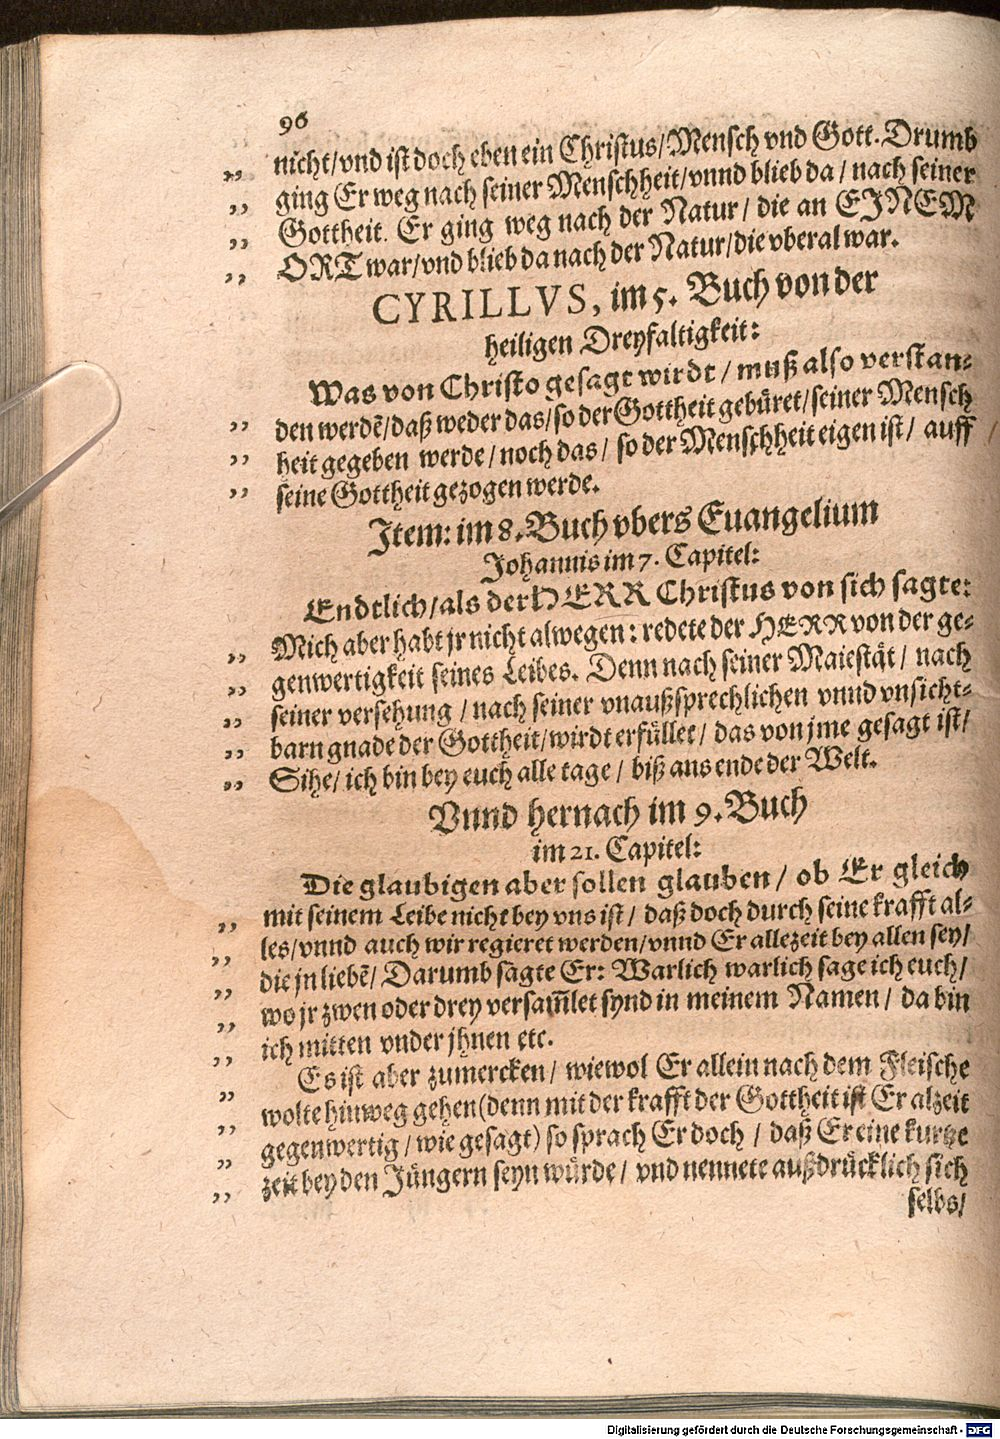 96
nicht/vnd ist doch eben ein Christus/Mensch vnd Gott. Drumb
„ ging Er weg nach seiner Menschheit/vnnd blieb da / nach seiner
„ Gottheit. Er ging weg nach der Natur / die an EINEM
„ ORT war/vnd blieb da nach der Natur/die vberal war.
„ CYRILLVS, im 5. Buch von der
heiligen Dreyfaltigkeit:
Was von Christo gesagt wirdt / muß also verstan-
„ den werdē/daß weder das/so der Gottheit gebüret/seiner Mensch
„ heit gegeben werde / noch das / so der Menschheit eigen ist / auff
„ seine Gottheit gezogen werde.
Item: im 8. Buch vbers Euangelium
Johannis im 7. Capitel:
Endtlich/als der HERR Christus von sich sagte:
„ Mich aber habt jr nicht alwegen: redete der HERR von der ge-
„ genwertigkeit seines Leibes. Denn nach seiner Maiestät / nach
„ seiner versehung / nach seiner vnaußsprechlichen vnnd vnsicht-
„ barn gnade der Gottheit/wirdt erfüllet / das von jme gesagt ist/
„ Sihe/ ich bin bey euch alle tage / biß ans ende der Welt.
Vnnd hernach im 9. Buch
im 21. Capitel:
Die glaubigen aber sollen glauben / ob Er gleich
„ mit seinem Leibe nicht bey vns ist / daß doch durch seine krafft al-
„ les/vnnd auch wir regieret werden/vnnd Er allezeit bey allen sey/
„ die jn liebē/ Darumb sagte Er: Warlich warlich sage ich euch/
„ wo jr zwen oder drey versam̄let synd in meinem Namen / da bin
„ ich mitten vnder jhnen etc.
„ Es ist aber zumercken / wiewol Er allein nach dem Fleische
„ wolte hinweg gehen (denn mit der krafft der Gottheit ist Er alzeit
„ gegenwertig / wie gesagt) so sprach Er doch / daß Er eine kurtze
„ zeit bey den Jüngern seyn würde / vnd nennete außdrücklich sich
selbs/
Digitalisierung gefördert durch die Deutsche Forschungsgemeinschaft - DFG